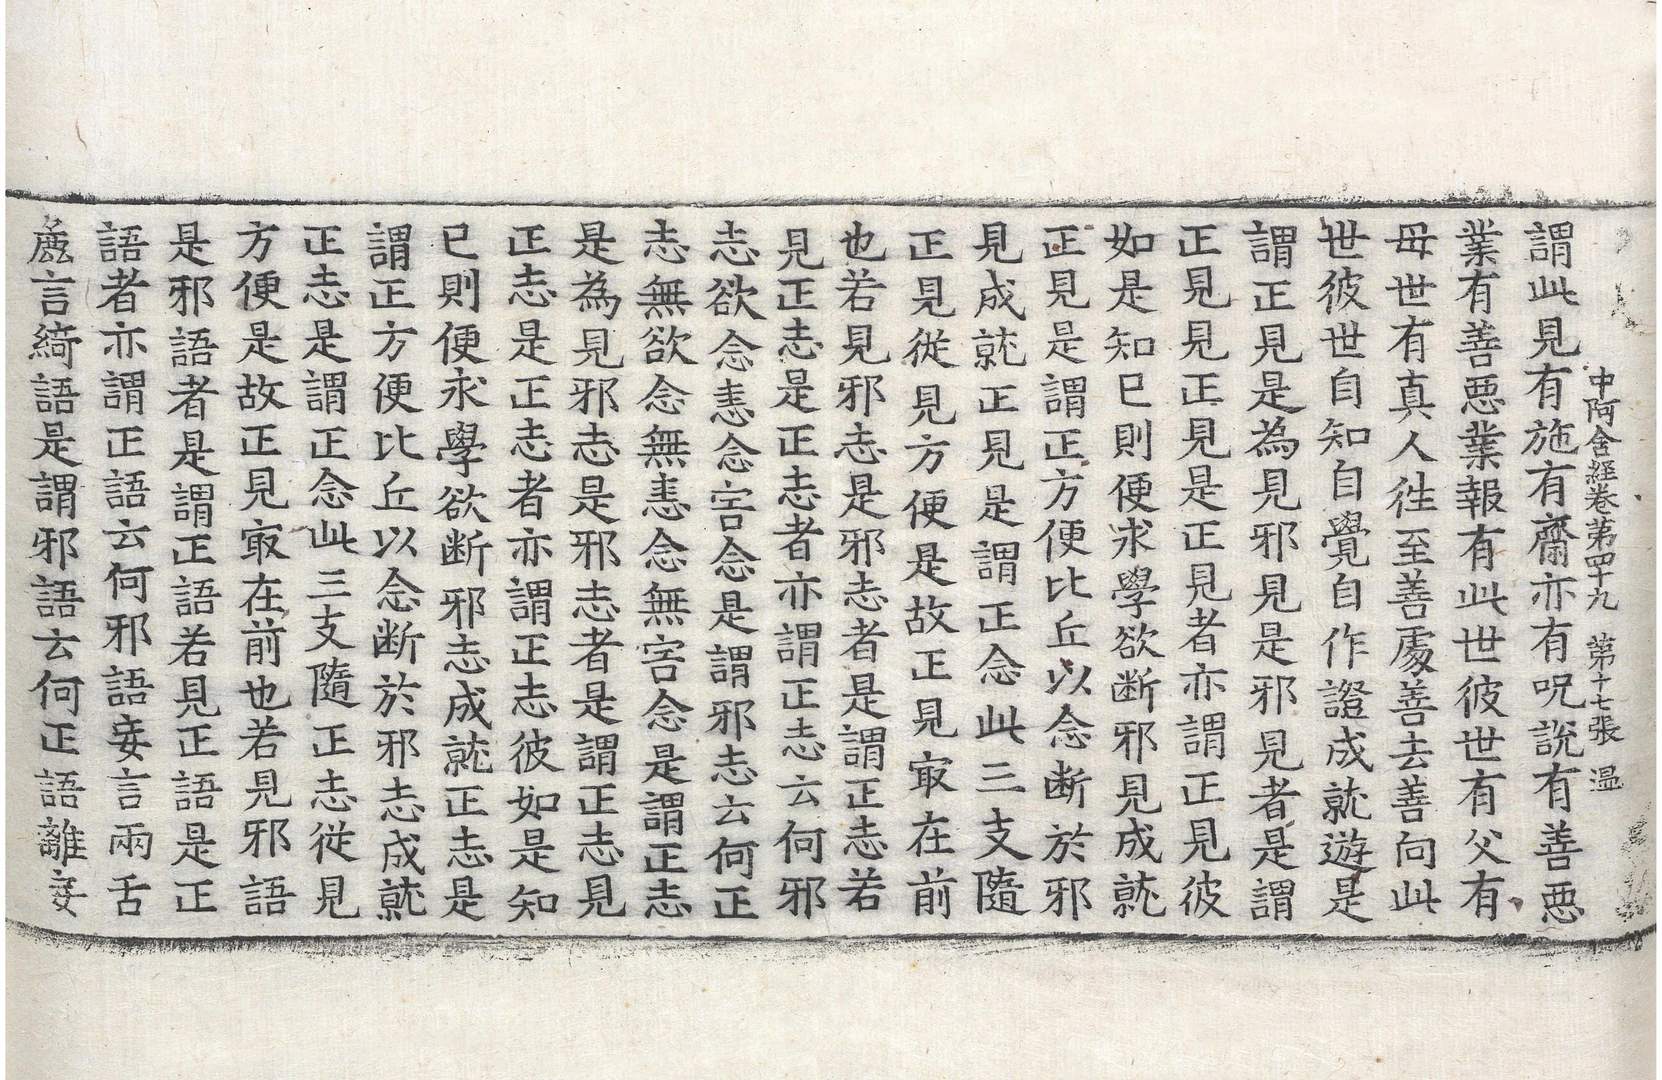 中阿含經卷第四十九 第十七張 溫
謂此見有施有齋亦有呪說有善惡
業有善惡業報有此世彼世有父有
母世有真人往至善處善去善向此
世彼世自知自覺自作證成就遊是
謂正見是為見邪見是邪見者是謂
正見見正見是正見者亦謂正見彼
如是知已則便求學欲斷邪見成就
正見是謂正方便比丘以念斷於邪
見成就正見是謂正念此三支隨
正見從見方便是故正見冣在前
也若見邪志是邪志者是謂正志若
見正志是正志者亦謂正志云何邪
志欲念恚念害念是謂邪志云何正
志無欲念無恚念無害念是謂正志
是為見邪志是邪志者是謂正志見
正志是正志者亦謂正志彼如是知
已則便求學欲斷邪志成就正志是
謂正方便比丘以念斷於邪志成就
正志是謂正念此三支隨正志從見
方便是故正見冣在前也若見邪語
是邪語者是謂正語若見正語是正
語者亦謂正語云何邪語妄言兩舌
麁言綺語是謂邪語云何正語離妄